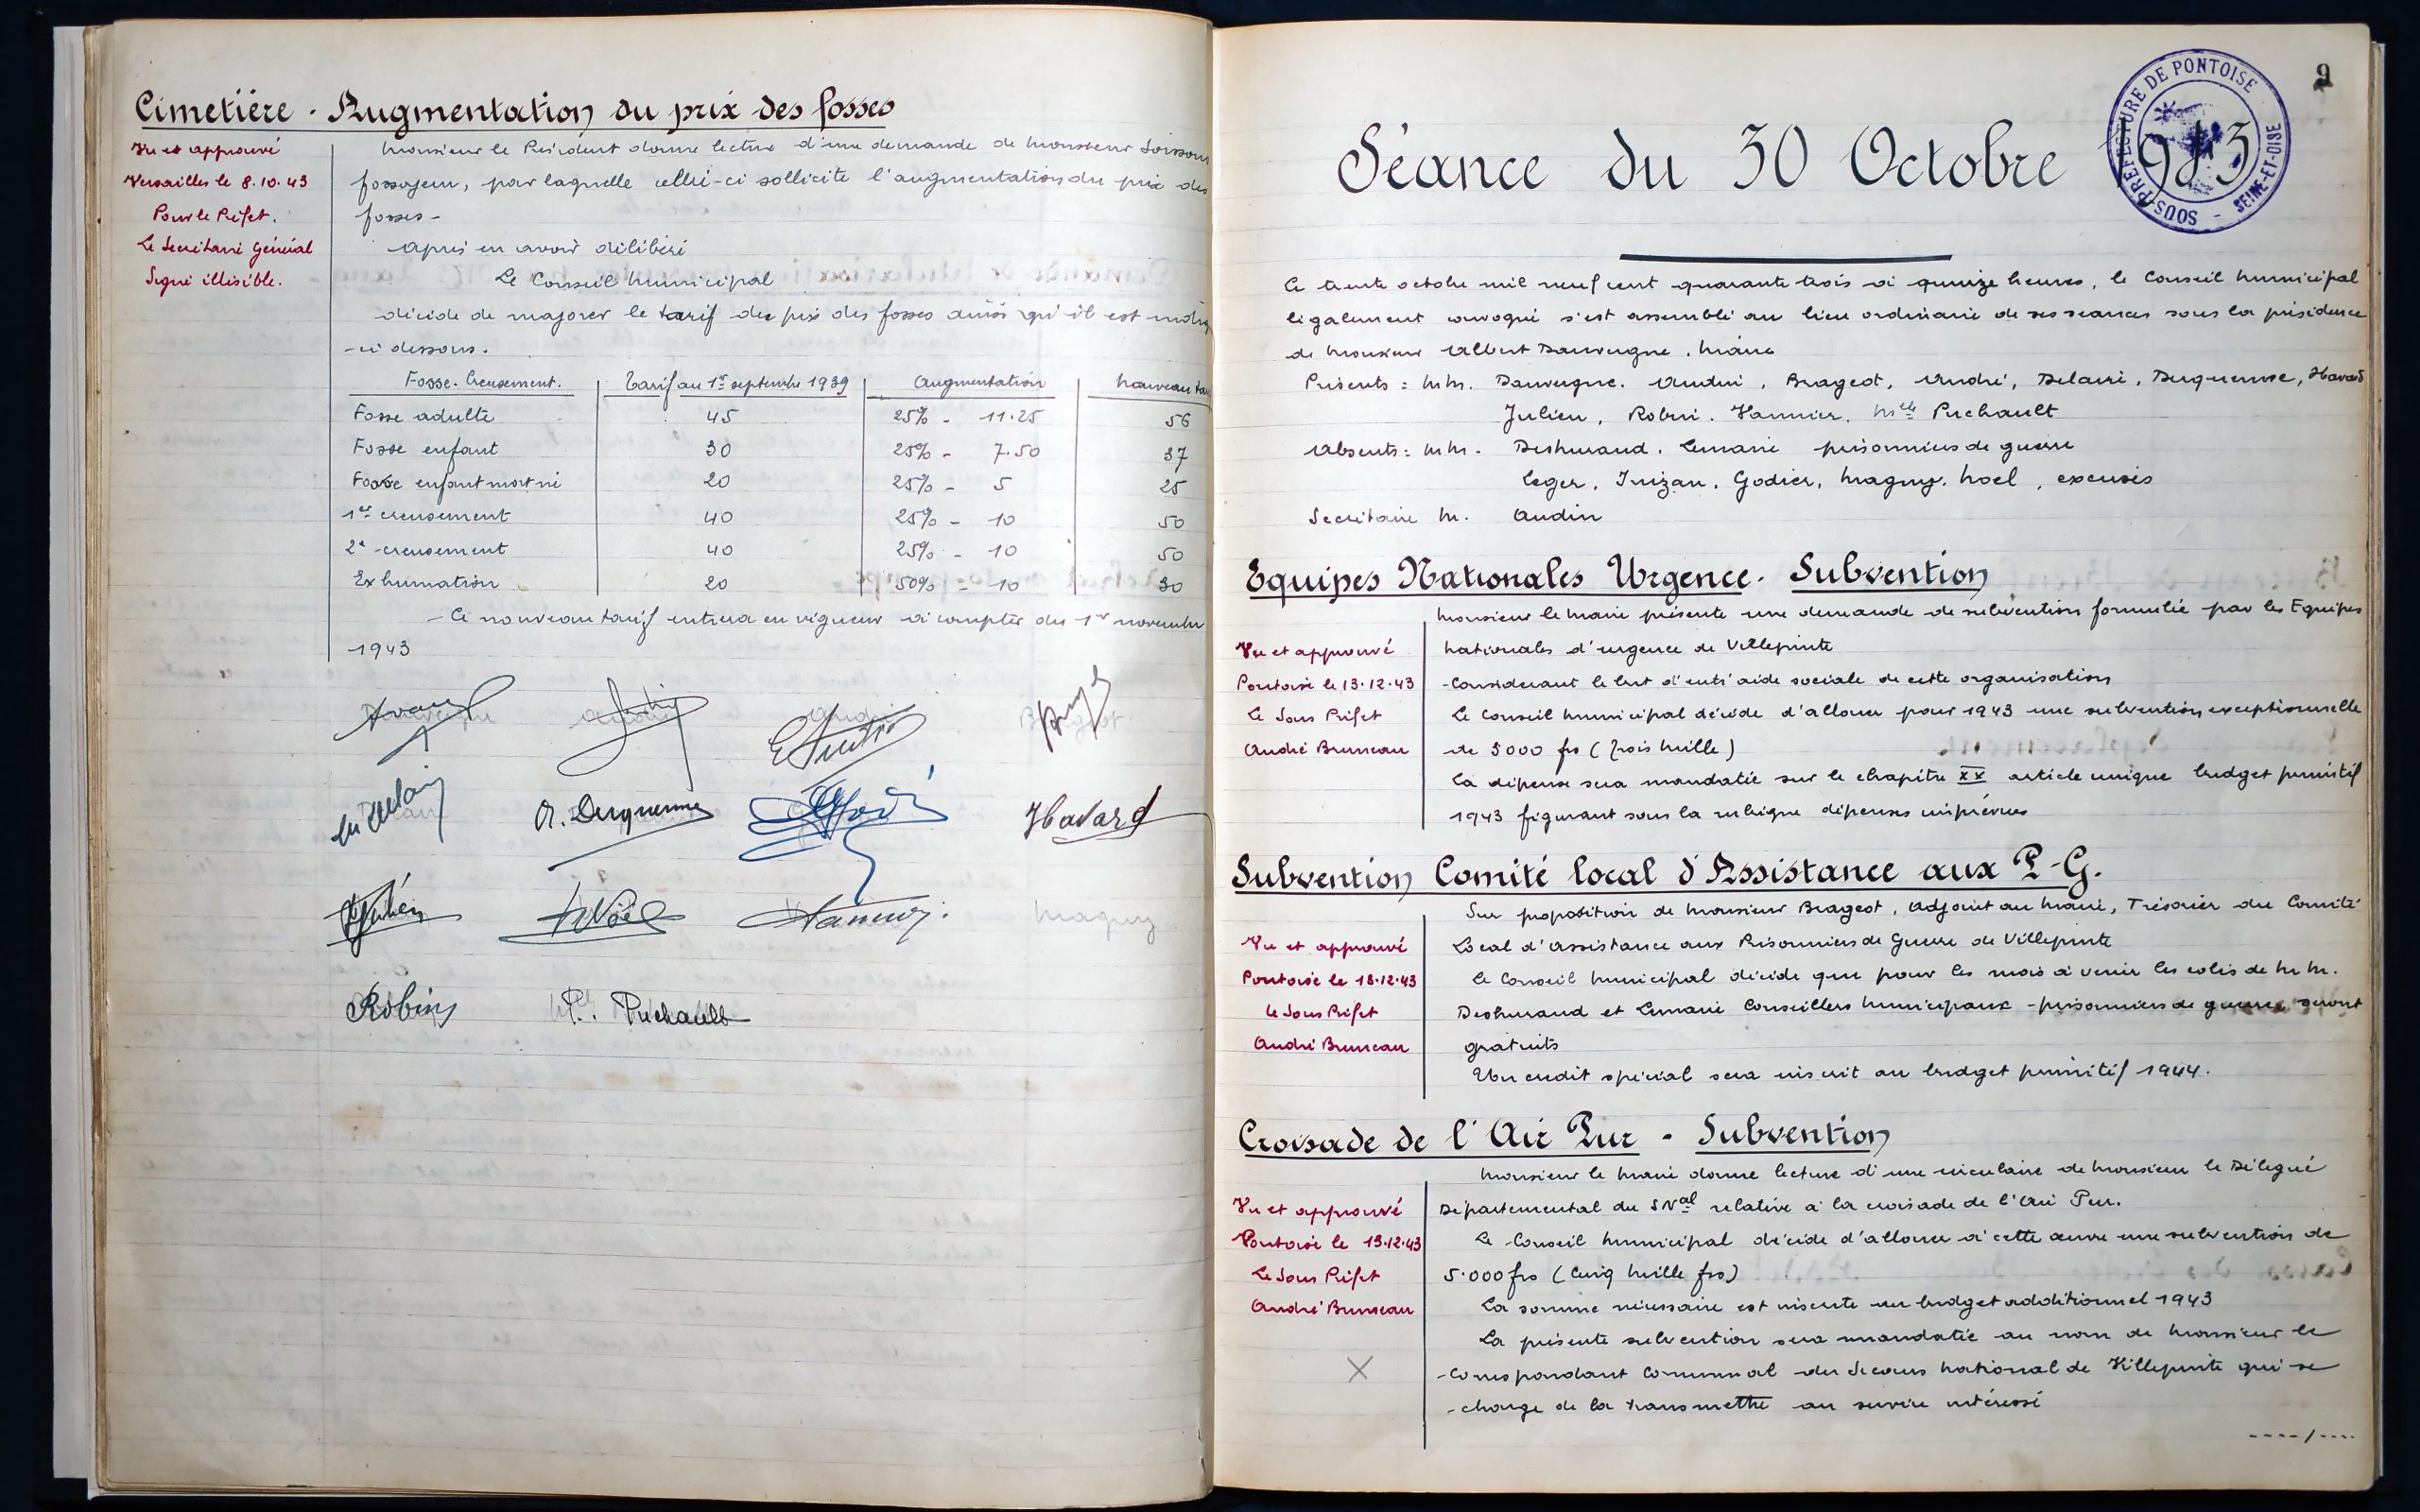 Cimetière - Augmentation du prix des fosses
Vu et approuvé
Versailles le 8.10.43
Pour le Préfet.
Le Secrétaire Général
Signé illisible.
Monsieur le Président donne lecture d'une demande de Monsieur Soisson
fossoyeur, par laquelle celui-ci sollicite l'augmentation du prix des
fosses -
après en avoir délibéré
Le Conseil Municipal
décide de majorer le tarif des prix des fosses ainsi qu'il est indiq
-ci dessous.
Fosse. Creusement. Tarif au 1er septembre 1939 Augmentation Nouveau ta
Fosse adulte 45 25% - 11.25 56
Fosse enfant 30 25% - 7.50 37
Fosse enfant mort né 20 25% - 5 25
1er creusement 40 25% - 10 50
2e creusement 40 25% - 10 50
Exhumation 20 50% - 10 30
- Ce nouveau tarif entrera en vigueur à compter du 1er novembre
1943
A. Duquenne
Havard
Julien HNoël Hannier. Maguy
Robin P. Puchault
9
SOUS-PRÉFECTURE DE PONTOISE - SEINE-ET-OISE
Séance du 30 Octobre 1943
Ce trente octobre mil neuf cent quarante trois à quinze heures, le Conseil Municipal
légalement convoqué s'est assemblé au lieu ordinaire de ses séances sous la présidence
de Monsieur Albert Dauvergne, Maire
Présents : M.M. Dauvergne. Audin, Brageot, André, Delaire, Duquenne, Havard
Julien, Robin. Hannier. Mlle Puchault
Absents : M.M. Deshuraud. Lemaire prisonniers de guerre
Leger, Inizan, Godier, Maguy. Noel, excusés
Secrétaire M. Audin
Equipes Nationales Urgence. Subvention
Vu et approuvé
Pontoise le 13.12.43
Le Sous Préfet
André Bruneau
Monsieur le Maire présente une demande de subvention formulée par les Equipes
Nationales d'urgence de Villepinte
-Considérant le but d'entr'aide sociale de cette organisation
Le Conseil Municipal décide d'allouer pour 1943 une subvention exceptionnelle
de 3000 frs (Trois Mille)
La dépense sera mandatée sur le chapitre XX article unique budget primitif
1943 figurant sous la rubrique dépenses imprévues
Subvention Comité local d'Assistance aux P-G.
Vu et approuvé
Pontoise le 13.12.43
Le Sous Préfet
André Bruneau
Sur proposition de Monsieur Brageot, Adjoint au Maire, Trésorier du Comité
Local d'Assistance aux Prisonniers de Guerre de Villepinte
Le Conseil Municipal décide que pour les mois à venir les colis de M.M.
Deshuraud et Lemaire Conseillers Municipaux -prisonniers de guerre, seront
gratuits
Un crédit spécial sera inscrit au budget primitif 1944.
Croisade de l'Air Pur - Subvention
Vu et approuvé
Pontoise le 13.12.43
Le Sous Préfet
André Bruneau
Monsieur le Maire donne lecture d'une circulaire de Monsieur le Délégué
Départemental du SNal relative à la croisade de l'Air Pur.
Le Conseil Municipal décide d'allouer à cette œuvre une subvention de
5.000 frs (Cinq Mille frs)
La somme nécessaire est inscrite au budget additionnel 1943
La présente subvention sera mandatée au nom de Monsieur le
-Correspondant Communal du Secours National de Villepinte qui se
-charge de la transmettre au service intéressé
----/----